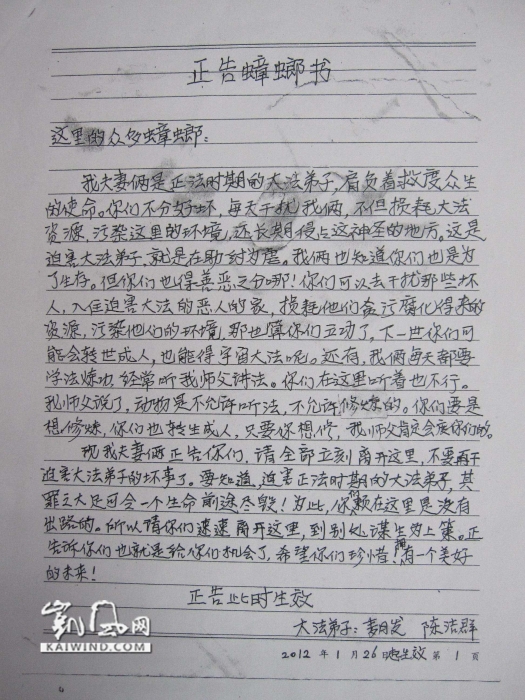 正告蟑螂书
这里的众多蟑螂：
我夫妻俩是正法时期的大法弟子，肩负着救度众生
的使命。你们不分好坏，每天干扰我俩，不但损耗大法
资源，污染这里的环境，还长期侵占这神圣的地方。这是
迫害大法弟子，就是在助纣为虐。我俩也知道你们也是为
了生存。但你们也得善恶之分哪！你们可以去干扰那些坏
人，入住迫害大法的恶人的家，损耗他们贪污腐化得来的
资源，污染他们的环境，那也算你们立功了，下一世你们可
能会转世成人，也能得宇宙大法呢。还有，我俩每天都要
学法炼功，经常听我师父讲法。你们在这里听着也不行。
我师父说了，动物是不允许听法，不允许修炼的。你们要是
想修炼，你们也转生成人，只要你想修，我师父肯定会度你们的。
现我夫妻俩正告你们，请全部立刻离开这里，不要再干
迫害大法弟子的坏事了。要知道，迫害正法时期的大法弟子，其
罪之大足可令一个生命前途尽毁！为此，你们赖在这里是没有
出路的。所以请你们速速离开这里，到别处谋生为上策。正
告诉你们也就是给你们机会了，希望你们珍惜！想有一个美好
的未来！
正告此时生效
大法弟子：麦月发 陈洁群
2012 年 1 月 26 日起生效 第 1 页
凯风网
KAIWIND.COM